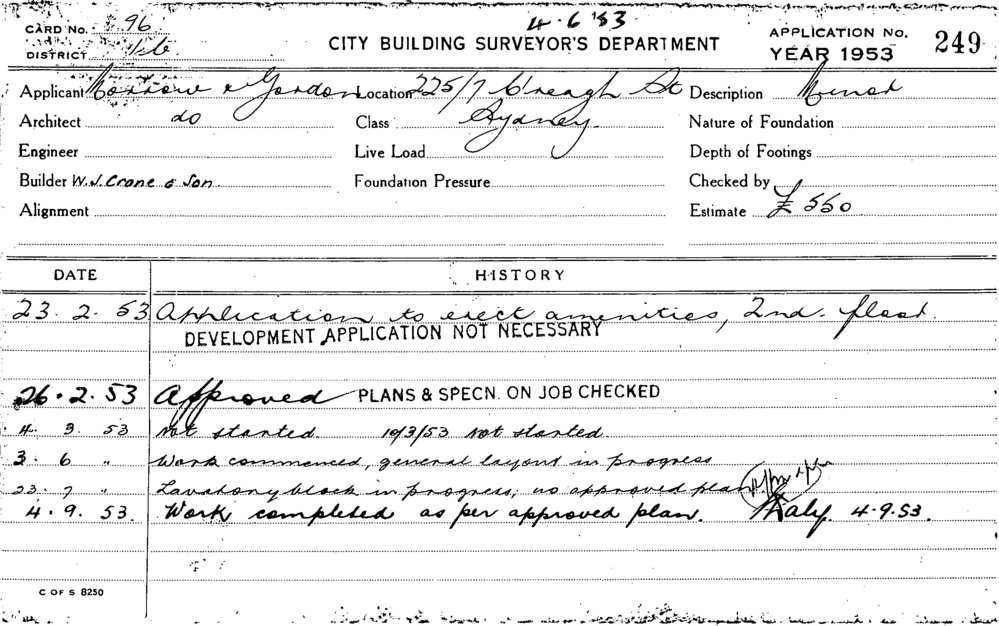 4.6.53
CARD No. 96
CITY BUILDING SURVEYOR'S DEPARTMENT
APPLICATION No. 249
DISTRICT
YEAR 1953
Applicant Morrow & Gordon Location 225/7 C'reagh St Description Minor
Architect do Class Sydney. Nature of Foundation
Engineer Live Load Depth of Footings
Builder W.J. Crane & Son Foundation Pressure Checked by
Alignment Estimate £ 550
DATE HISTORY
23. 2. 53 Application to erect amenities, 2nd. floor.
DEVELOPMENT APPLICATION NOT NECESSARY
26.2.53 Approved PLANS & SPECN. ON JOB CHECKED
4. 3. 53 Not started 10/3/53 Not started.
3. 6 " Work commenced, general layout in progress
23. 7 " Lavatory block in progress; as approved plan
4.9.53. Work completed as per approved plan. 4.9.53.
C OF S 8250